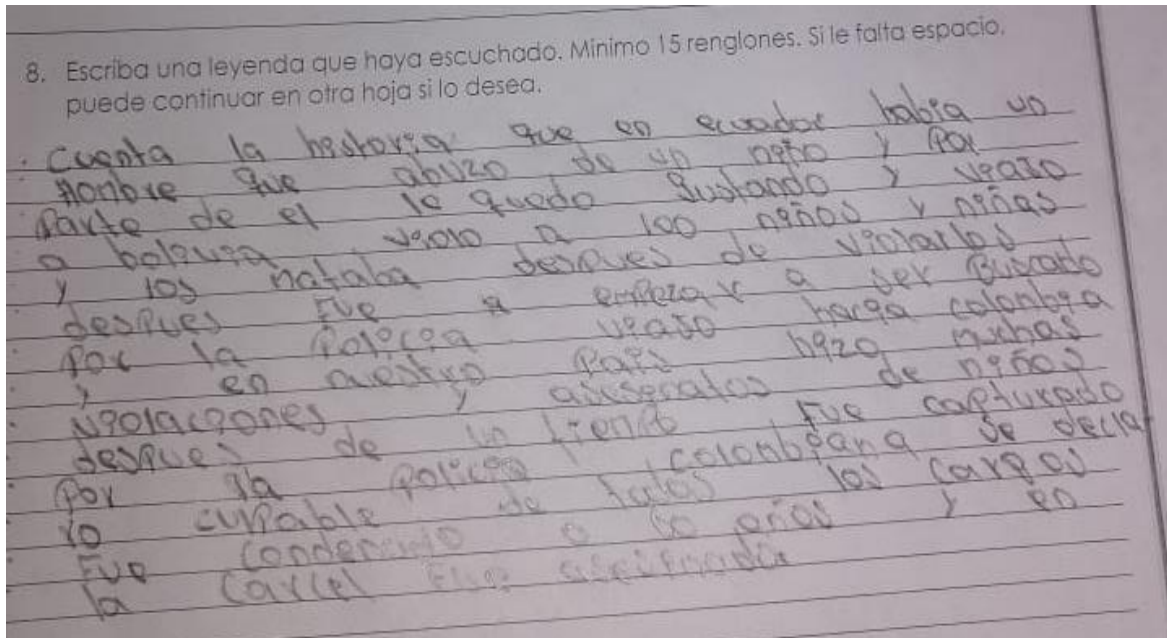 8. Escriba una leyenda que haya escuchado. Minimo 15 renglones. Si le falta espacio,
puede continuar en otra hoja si lo desea.
Cuenta la historia que en ecuador habia un
Hombre que abuzo de un niño y Por
Parte de el le quedo gustando y viajo
a bolivia violo a 100 niños y niñas
y los mataba despues de violarlos
despues Fue a empezar a ser Buscado
Por la Policia viajo hacia colombia
y en nuestro Pais hizo muchas
violaciones y de niños
despues de un tiempo Fue capturado
Por la Policia colombiana se decla
ro culpable de los cargos
Fue condenado a años y en
la carcel Fue